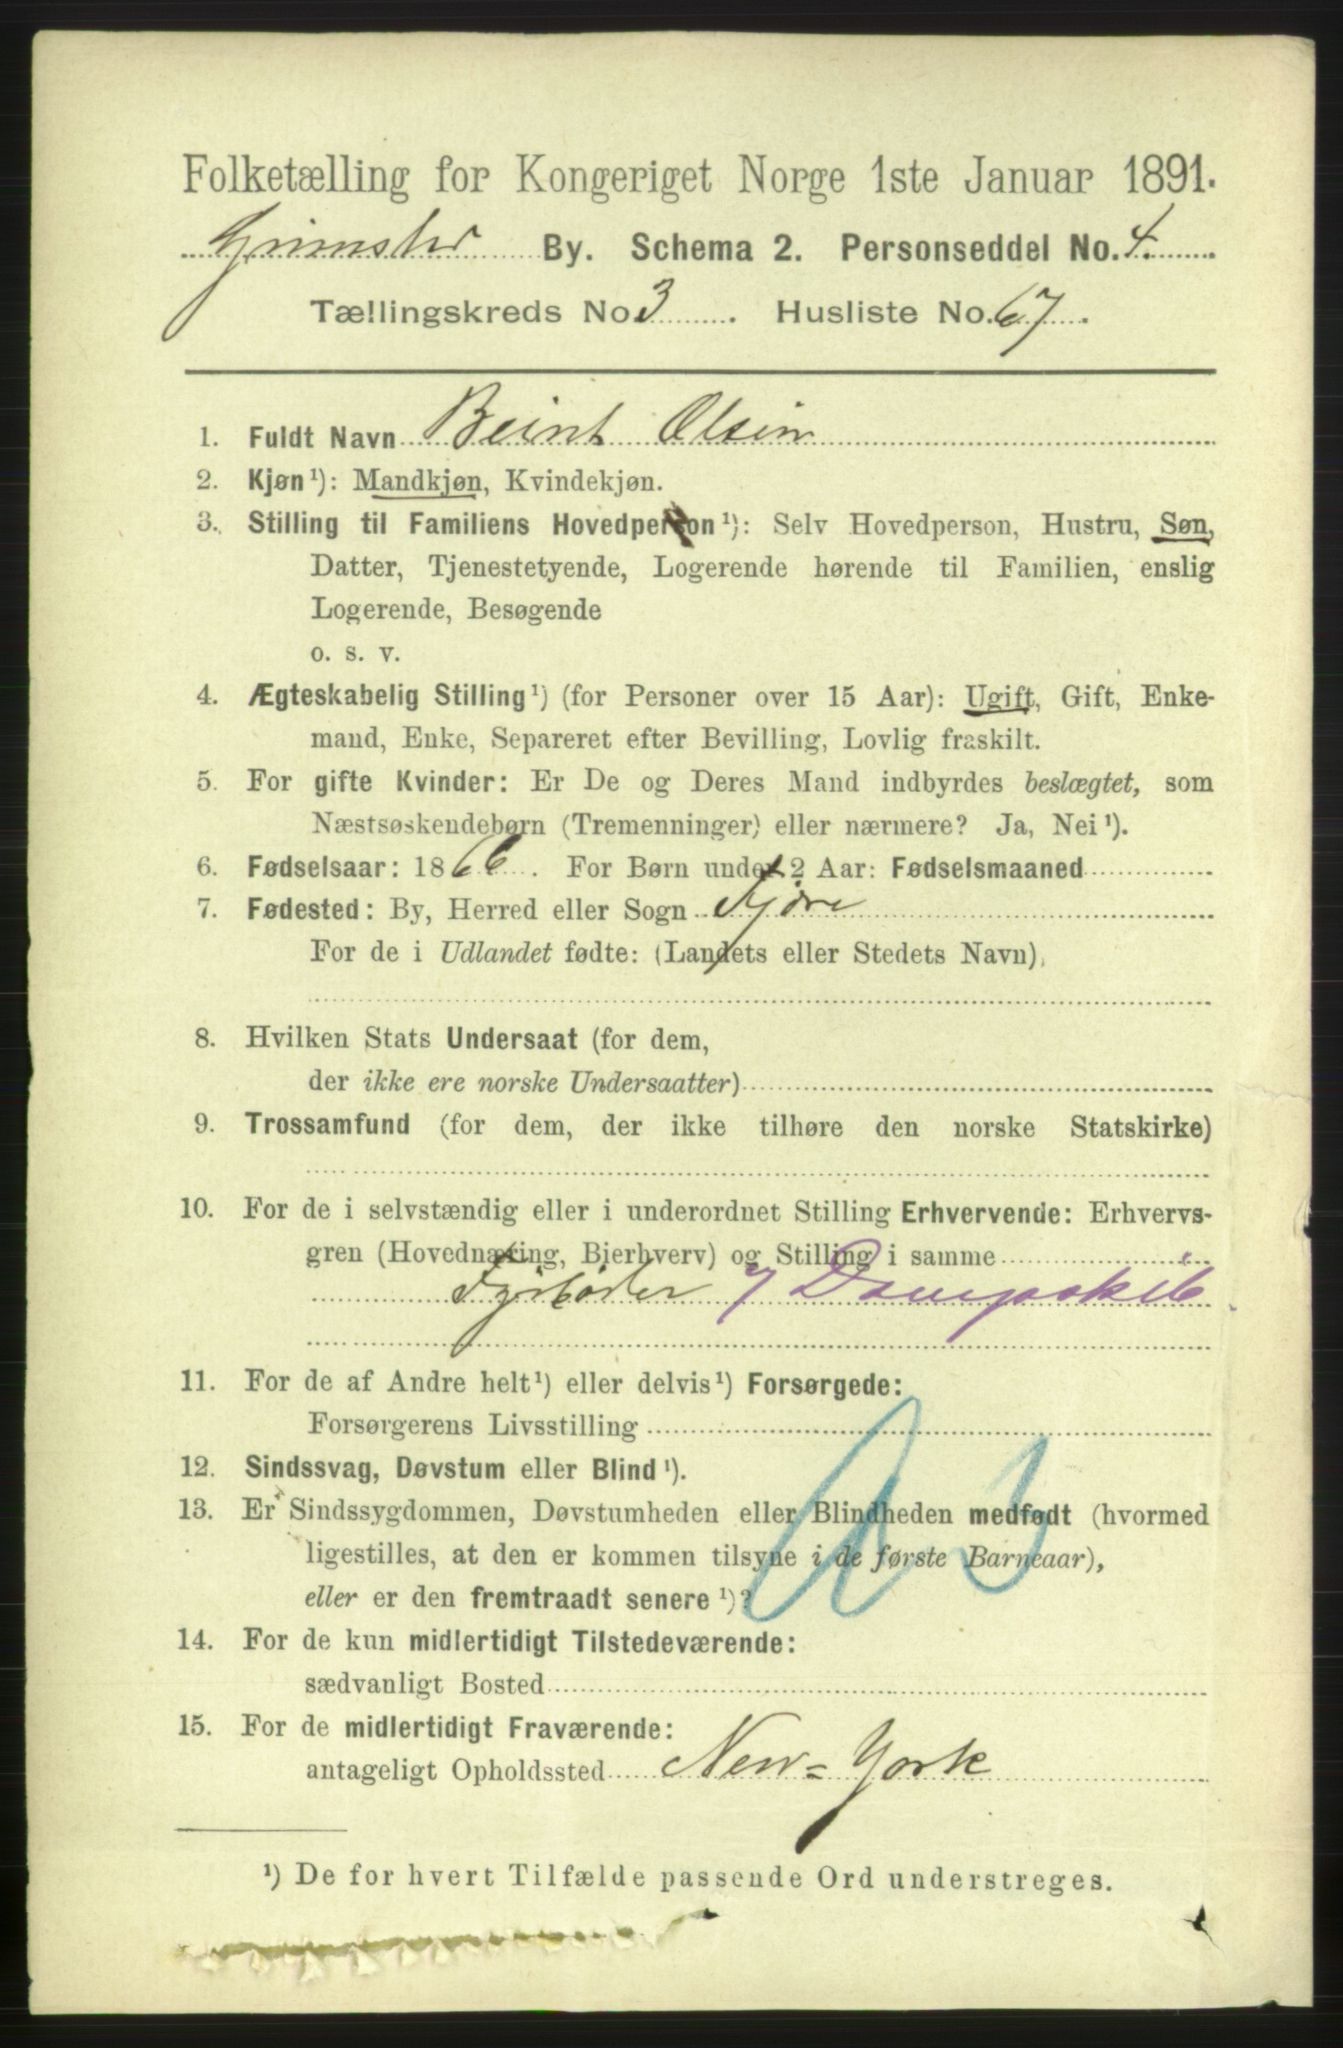 Folketælling for Kongeriget Norge 1ste Januar 1891.
Grimstad By. Schema 2. Personseddel No. 4.
Tællingskreds No 3. Husliste No. 67.
1. Fuldt Navn Beint Olsen
2. Kjøn ¹): Mandkjøn, Kvindekjøn.
3. Stilling til Familiens Hovedperson ¹): Selv Hovedperson, Hustru, Søn,
Datter, Tjenestetyende, Logerende hørende til Familien, enslig
Logerende, Besøgende
o. s. v.
4. Ægteskabelig Stilling ¹) (for Personer over 15 Aar): Ugift, Gift, Enke-
mand, Enke, Separeret efter Bevilling, Lovlig fraskilt.
5. For gifte Kvinder: Er De og Deres Mand indbyrdes beslægtet, som
Næstsøskendebørn (Tremenninger) eller nærmere? Ja, Nei ¹).
6. Fødselsaar: 1866. For Børn under 2 Aar: Fødselsmaaned
7. Fødested: By, Herred eller Sogn Fjære
For de i Udlandet fødte: (Landets eller Stedets Navn)
8. Hvilken Stats Undersaat (for dem,
der ikke ere norske Undersaatter)
9. Trossamfund (for dem, der ikke tilhøre den norske Statskirke)
10. For de i selvstændig eller i underordnet Stilling Erhvervende: Erhvervs-
gren (Hovednæring, Bierhverv) og Stilling i samme
Fyrbøder / Dampskib
11. For de af Andre helt ¹) eller delvis ¹) Forsørgede:
Forsørgerens Livsstilling
12. Sindssvag, Døvstum eller Blind ¹).
13. Er Sindssygdommen, Døvstumheden eller Blindheden medfødt (hvormed
ligestilles, at den er kommen tilsyne i de første Barneaar),
eller er den fremtraadt senere ¹)?
14. For de kun midlertidigt Tilstedeværende:
sædvanligt Bosted
15. For de midlertidigt Fraværende:
antageligt Opholdssted New=York
¹) De for hvert Tilfælde passende Ord understreges.